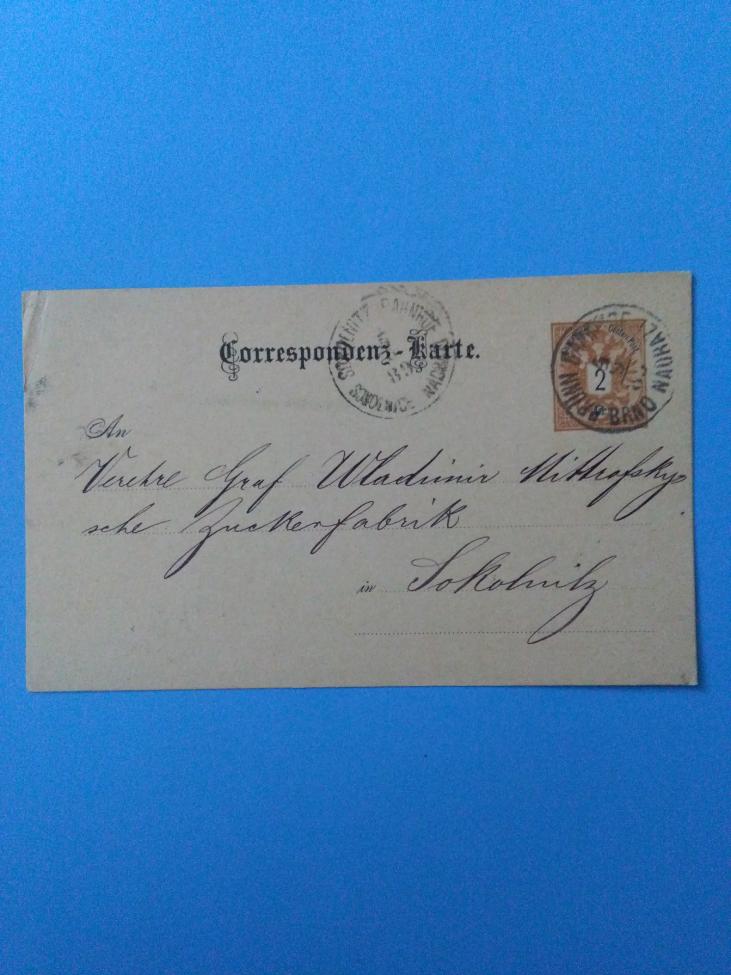 Correspondenz-Karte.
SOKOLNITZ BAHNHOF
SOKOLNICE NÁDRAŽÍ
2
BRÜNN BRNO NÁDRAŽÍ
An
Verehre Graf Wladimir Mittrofsky
sche Zuckerfabrik
in Sokolnitz